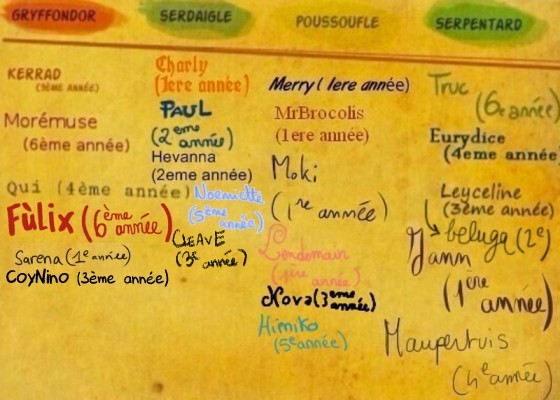 GRYFFONDOR
KERRAD
(3ÈME ANNÉE)
Morémuse
(6ème année)
Qui (4ème année)
Fùlix (6ème année)
Sarena (1e année)
CoyNino (3ème année)
SERDAIGLE
Charly
(1ere année)
PAUL
(2eme année)
Hevanna
(2eme année)
Noemiette
(5ème année)
CLEAVE
(3e année)
POUSSOUFLE
Merry (1ere année)
MrBrocolis
(1ere année)
Moki
(1re année)
Lendemain
(1ère année)
Nova (3eme année)
Himiko
(5e année)
SERPENTARD
Truc
(6e année)
Eurydice
(4eme année)
Leyceline
(3ème année)
beluga (2e)
Yann
(1ère année)
Maupertuis
(4e année)